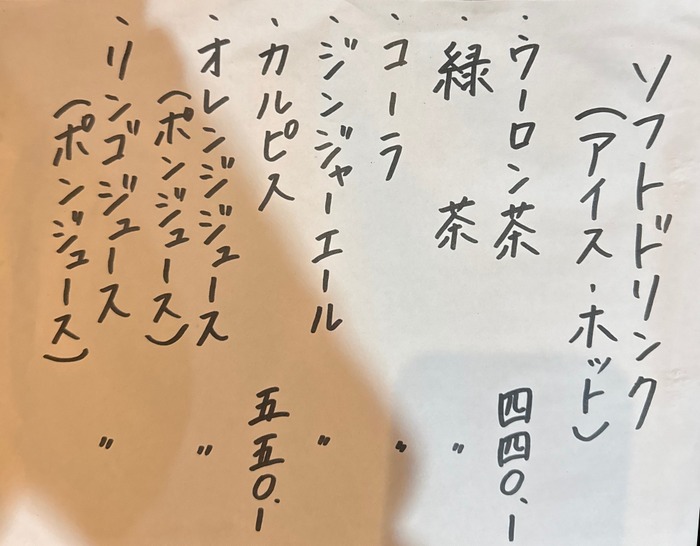 ソフトドリンク
(アイス・ホット)
・ウーロン茶 四四〇.ー
・緑茶 〃
・コーラ 〃
・ジンジャーエール 〃
・カルピス 五五〇.ー
・オレンジジュース 〃
(ポンジュース)
・リンゴジュース 〃
(ポンジュース)